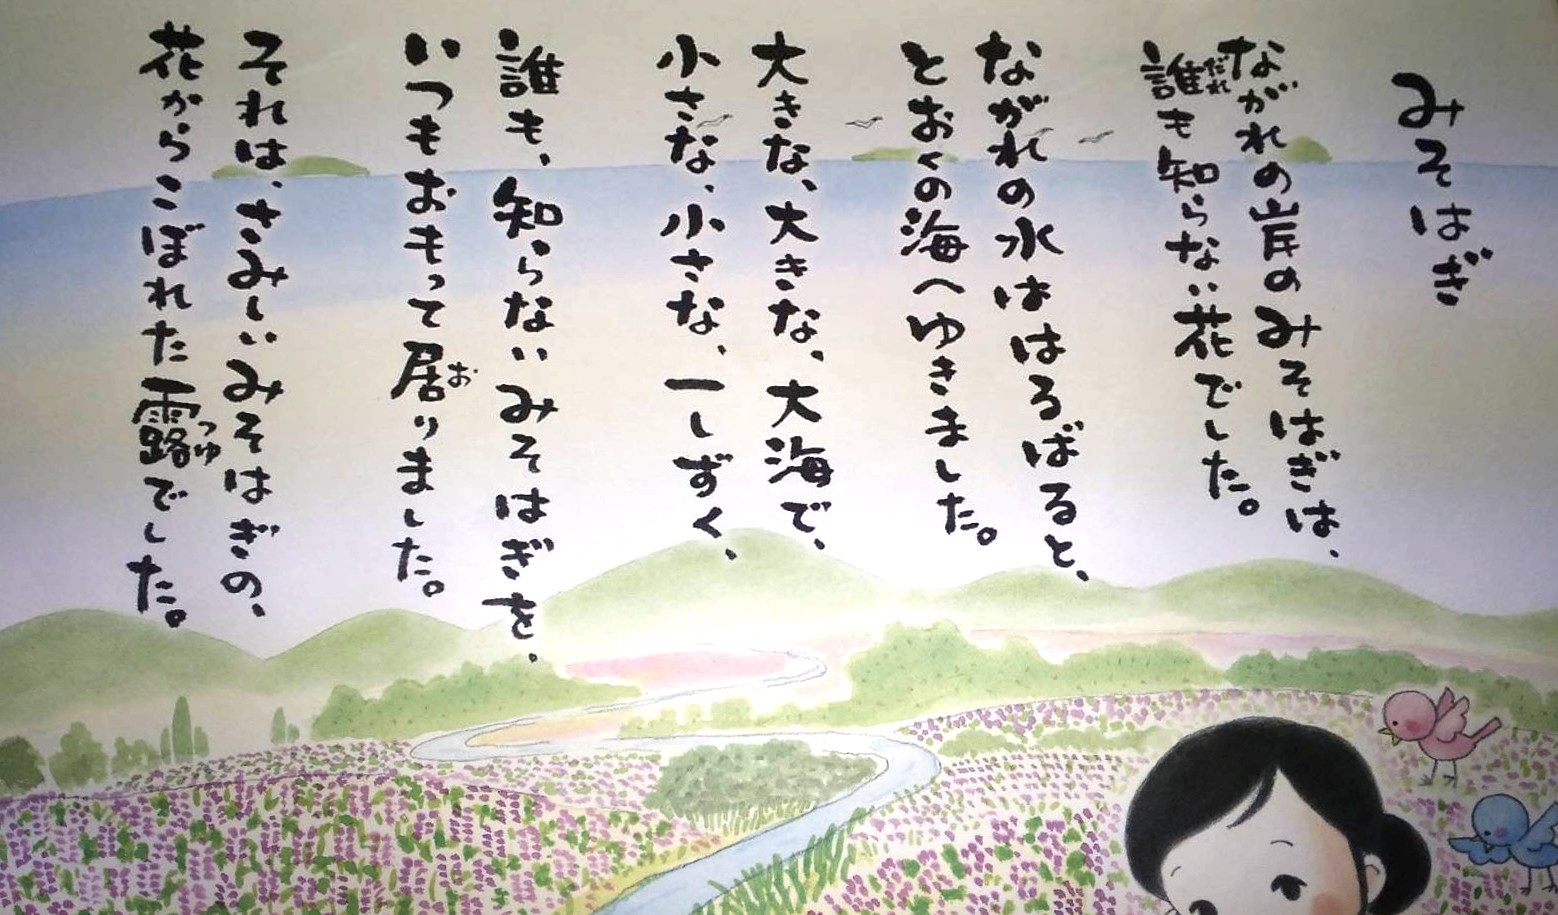 みそはぎ
ながれの岸のみそはぎは、
誰も知らない花でした。
ながれの水ははるばると、
とおくの海へゆきました。
大きな、大きな、大海で、
小さな、小さな、一しずく、
誰も、知らないみそはぎを、
いつもおもって居りました。
それは、さみしいみそはぎの、
花からこぼれた露でした。